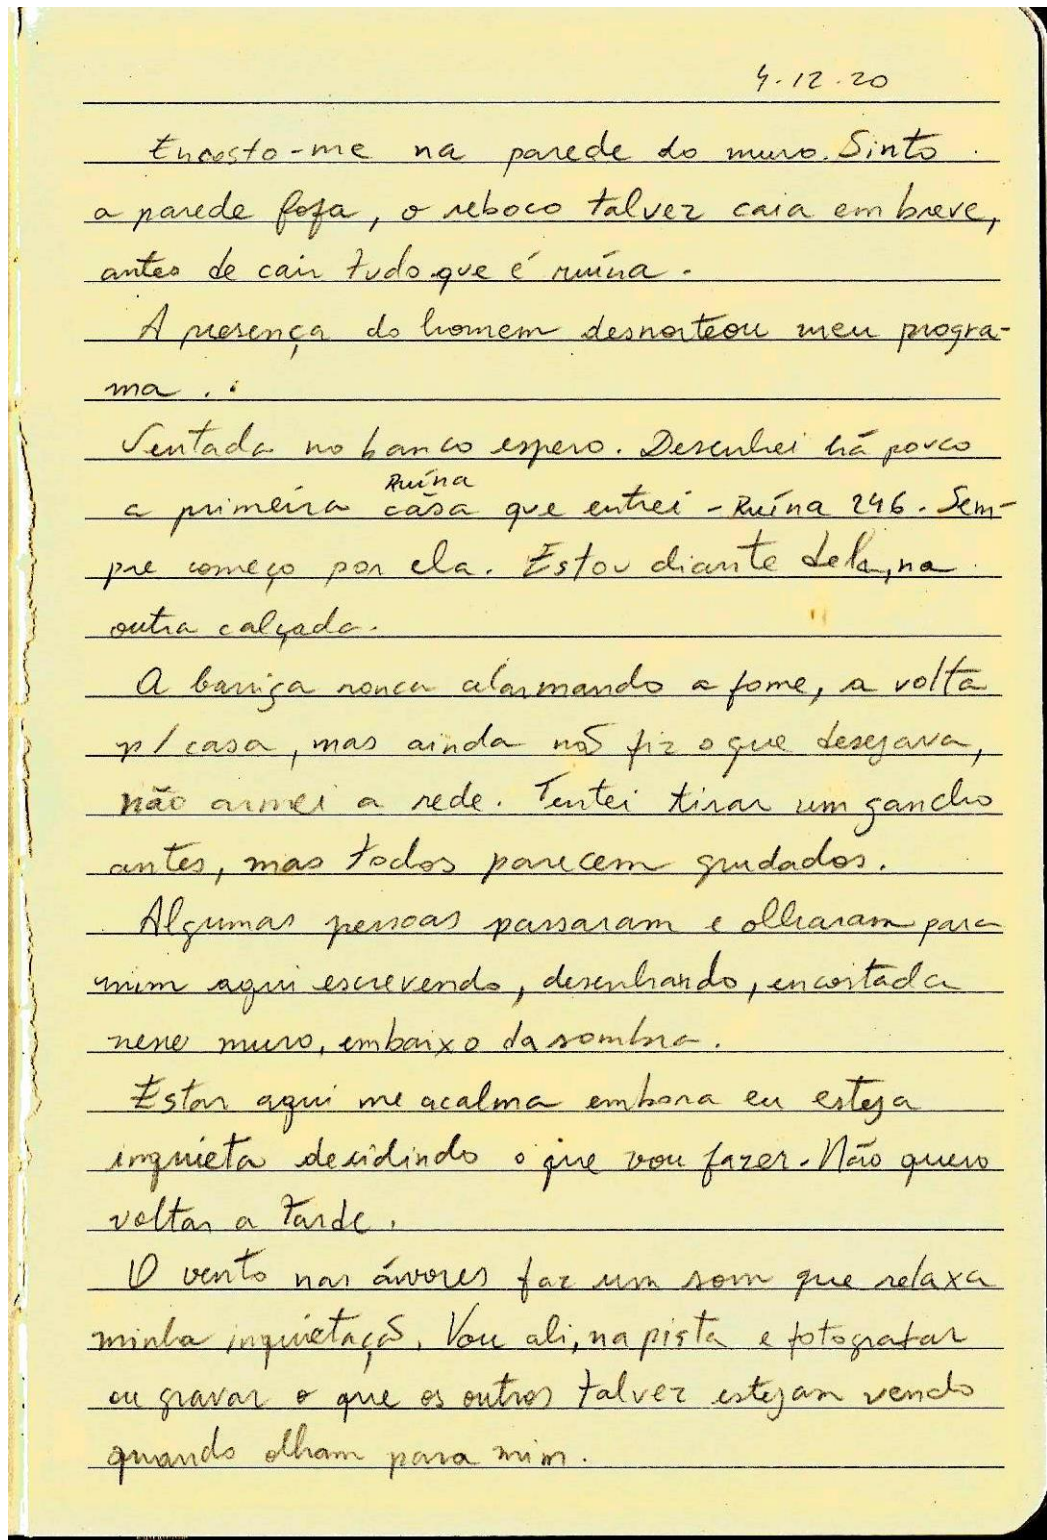 4.12.20
Encosto-me na parede do muro. Sinto
a parede fofa, o reboco talvez caia em breve,
antes de cair tudo que é ruína.
A presença do homem desnorteou meu progra-
ma . .
Sentada no banco espero. Desenhei há pouco
Ruína
a primeira casa que entrei - Ruína 246. Sem-
pre começo por ela. Estou diante dela, na
outra calçada.
A barriga ronca alarmando a fome, a volta
p/ casa, mas ainda não fiz o que desejava,
não armei a rede. Tentei tirar um gancho
antes, mas todos parecem grudados.
Algumas pessoas passaram e olharam para
mim aqui escrevendo, desenhando, encostada
nesse muro, embaixo da sombra.
Estar aqui me acalma embora eu esteja
inquieta decidindo o que vou fazer. Não quero
voltar a tarde.
O vento nas árvores faz um som que relaxa
minha inquietação. Vou ali, na pista e fotografar
ou gravar o que os outros talvez estejam vendo
quando olham para mim.